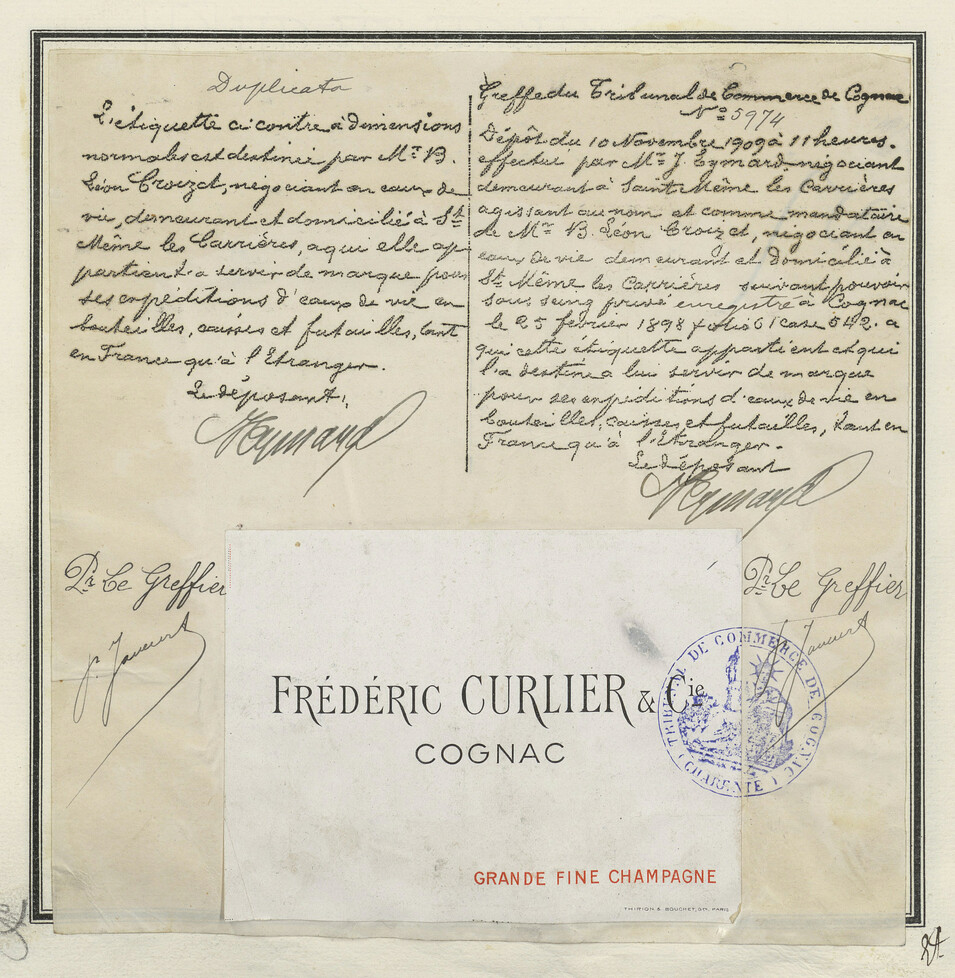 Duplicata
L'étiquette ci contre à dimensions
normales est destinée par Mr. B.
Léon Croizet, négociant en eaux de
vie, demeurant et domicilié à St.
Même les Carrières, a qui elle ap
partient a servir de marque pour
ses expéditions d'eaux de vie en
bouteilles, caisses et futailles, tant
en France qu'à l'Etranger.
Le déposant,
J Eymard
Greffe du Tribunal de Commerce de Cognac
No 5974
Dépôt du 10 Novembre 1909 à 11 heures.
effectué par Mr. J. Eymard négociant
demeurant à Saint Même les Carrières
agissant au nom et comme mandataire
de Mr. B. Léon Croizet, négociant en
eaux de vie demeurant et domicilié à
St. Même les Carrières suivant pouvoir
sous seing privé enregistré à Cognac
le 25 février 1898 folio 61 case 542. a
qui cette étiquette appartient et qui
l'a destinée a lui servir de marque
pour ses expéditions d'eaux de vie en
bouteilles, caisses et futailles, tant en
France qu'à l'Etranger.
Le déposant
J Eymard
Pr. Le Greffier
Pr. Le Greffier
FRÉDÉRIC CURLIER & Cie
COGNAC
GRANDE FINE CHAMPAGNE
THIRION E. BOUCHET, Sr. PARIS
TRIBUNAL DE COMMERCE DE COGNAC
(CHARENTE)